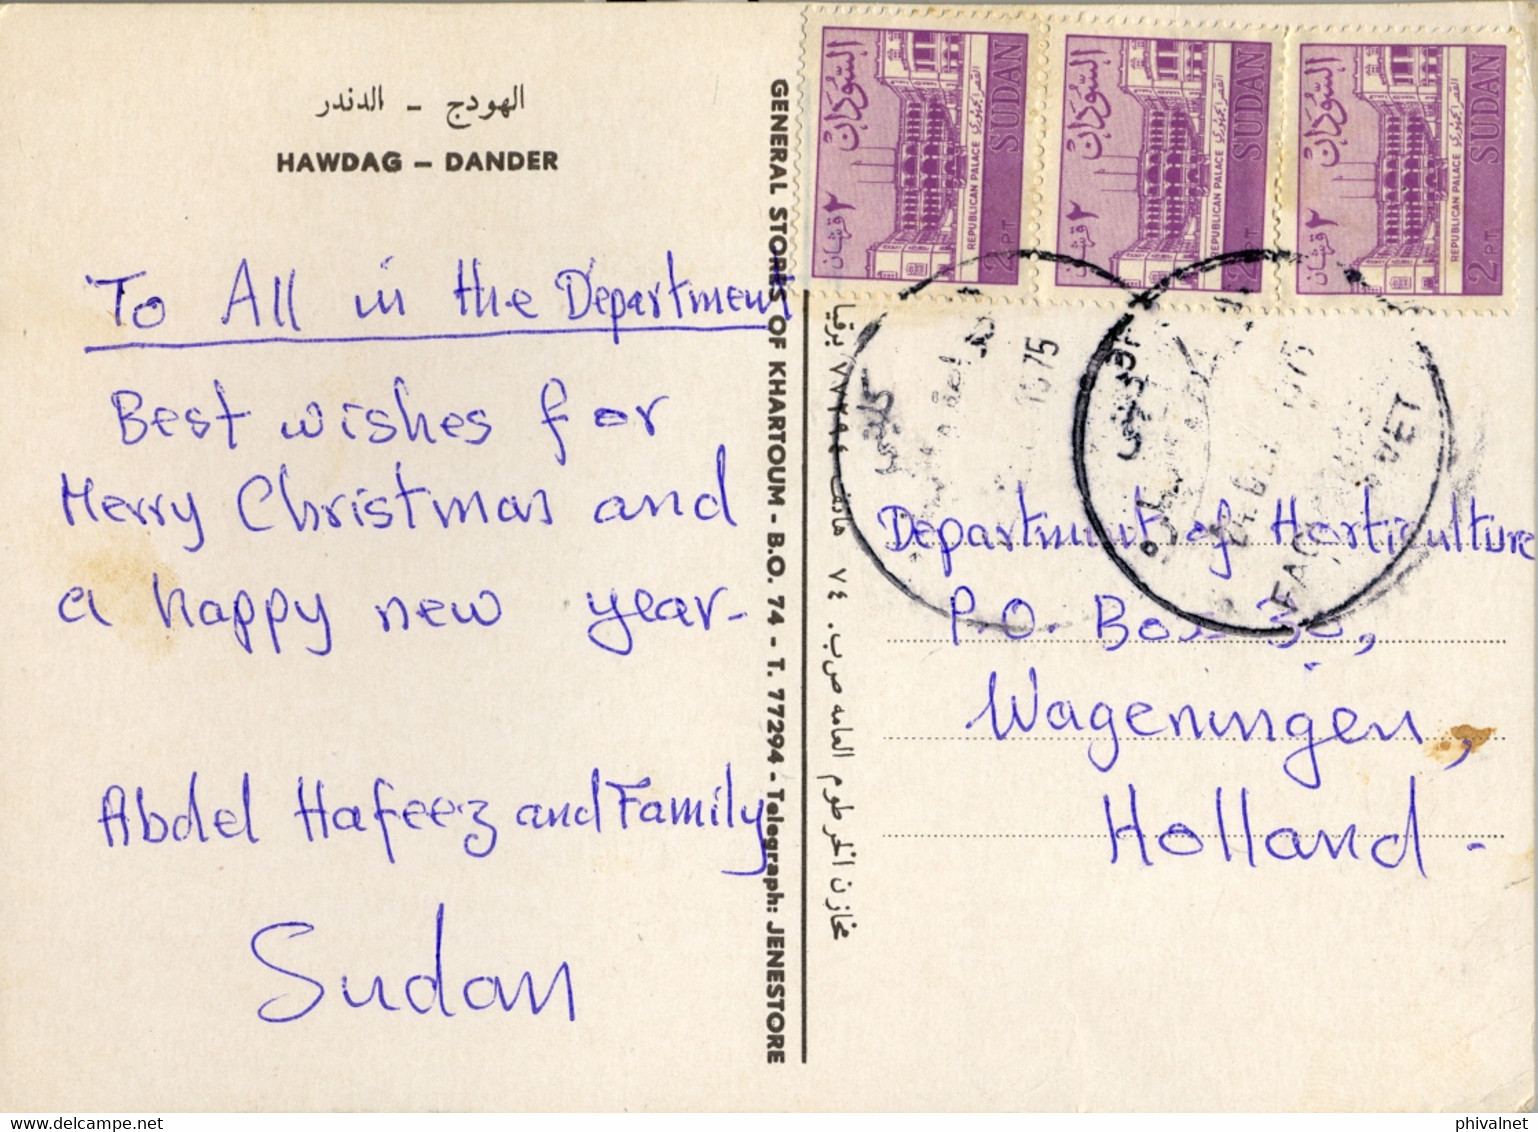 الهودج - الدندر
HAWDAG - DANDER
To All in the Department
Best wishes for
Merry Christmas and
a happy new year-
Abdel Hafeez and Family
Sudan
GENERAL STORES OF KHARTOUM - B.O. 74 - T. 77294 - Telegraph: JENESTORE
مخازن الخرطوم العامه ص.ب. ٧٤ هاتف ٧٧٢٩٤ برقيا
السودان
القصر الجمهوري
REPUBLICAN PALACE
SUDAN
٢ قرشان
2 P.T.
السودان
القصر الجمهوري
REPUBLICAN PALACE
SUDAN
٢ قرشان
2 P.T.
السودان
القصر الجمهوري
REPUBLICAN PALACE
SUDAN
٢ قرشان
2 P.T.
1975
1975
VET
Department of Horticulture
P.O. Box 30,
Wageningen,
Holland-
phivalnet